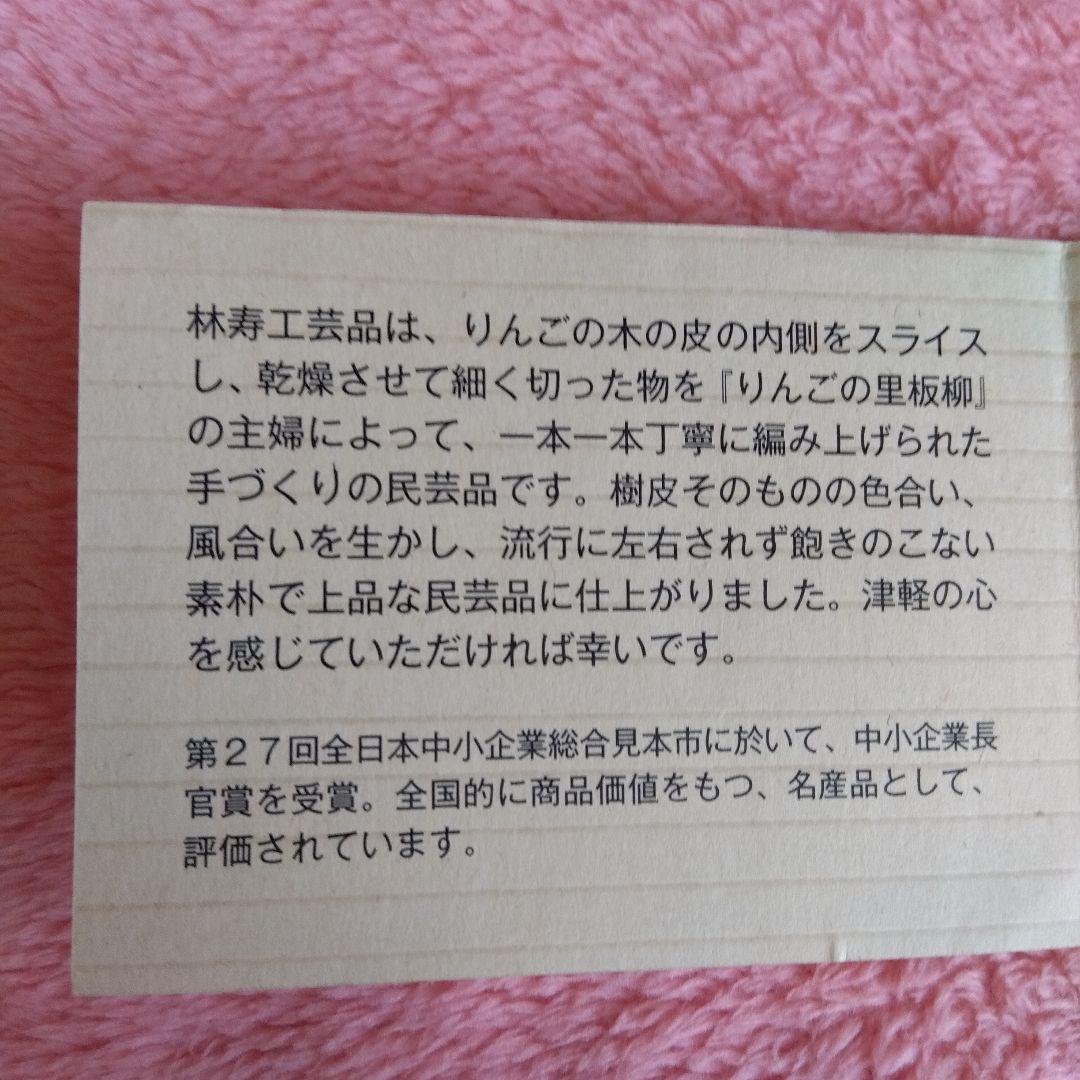 林寿工芸品は、りんごの木の皮の内側をスライス
し、乾燥させて細く切った物を『りんごの里板柳』
の主婦によって、一本一本丁寧に編み上げられた
手づくりの民芸品です。樹皮そのものの色合い、
風合いを生かし、流行に左右されず飽きのこない
素朴で上品な民芸品に仕上がりました。津軽の心
を感じていただければ幸いです。
第27回全日本中小企業総合見本市に於いて、中小企業長
官賞を受賞。全国的に商品価値をもつ、名産品として、
評価されています。